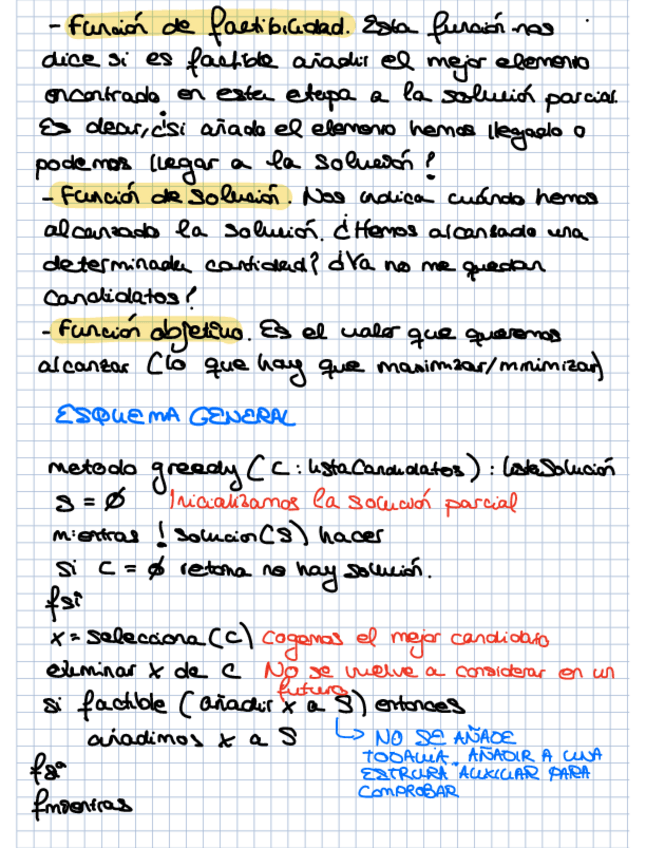 - Función de factibilidad. Esta función nos
dice si es factible añadir el mejor elemento
encontrado en esta etapa a la solución parcial.
Es decir, ¿si añado el elemento hemos llegado o
podemos llegar a la solución?
- Función de solución. Nos indica cuándo hemos
alcanzado la solución. ¿Hemos alcanzado una
determinada cantidad? ¿Ya no me quedan
candidatos?
- Función objetivo. Es el valor que queremos
alcanzar (lo que hay que maximizar/minimizar)
ESQUEMA GENERAL
metodo greedy (C: listaCandidatos) : listaSolución
S = ∅ Inicializamos la solución parcial
mientras ! solucion(S) hacer
si C = ∅ retorna no hay solución.
fsi
x = selecciona(C) Cogemos el mejor candidato
eliminar x de C No se vuelve a considerar en un
futuro
si factible (añadir x a S) entonces
añadimos x a S ↳ NO SE AÑADE
TODAVIA. AÑADIR A UNA
ESTRURA AUXILIAR PARA
COMPROBAR
fsi
fmientras